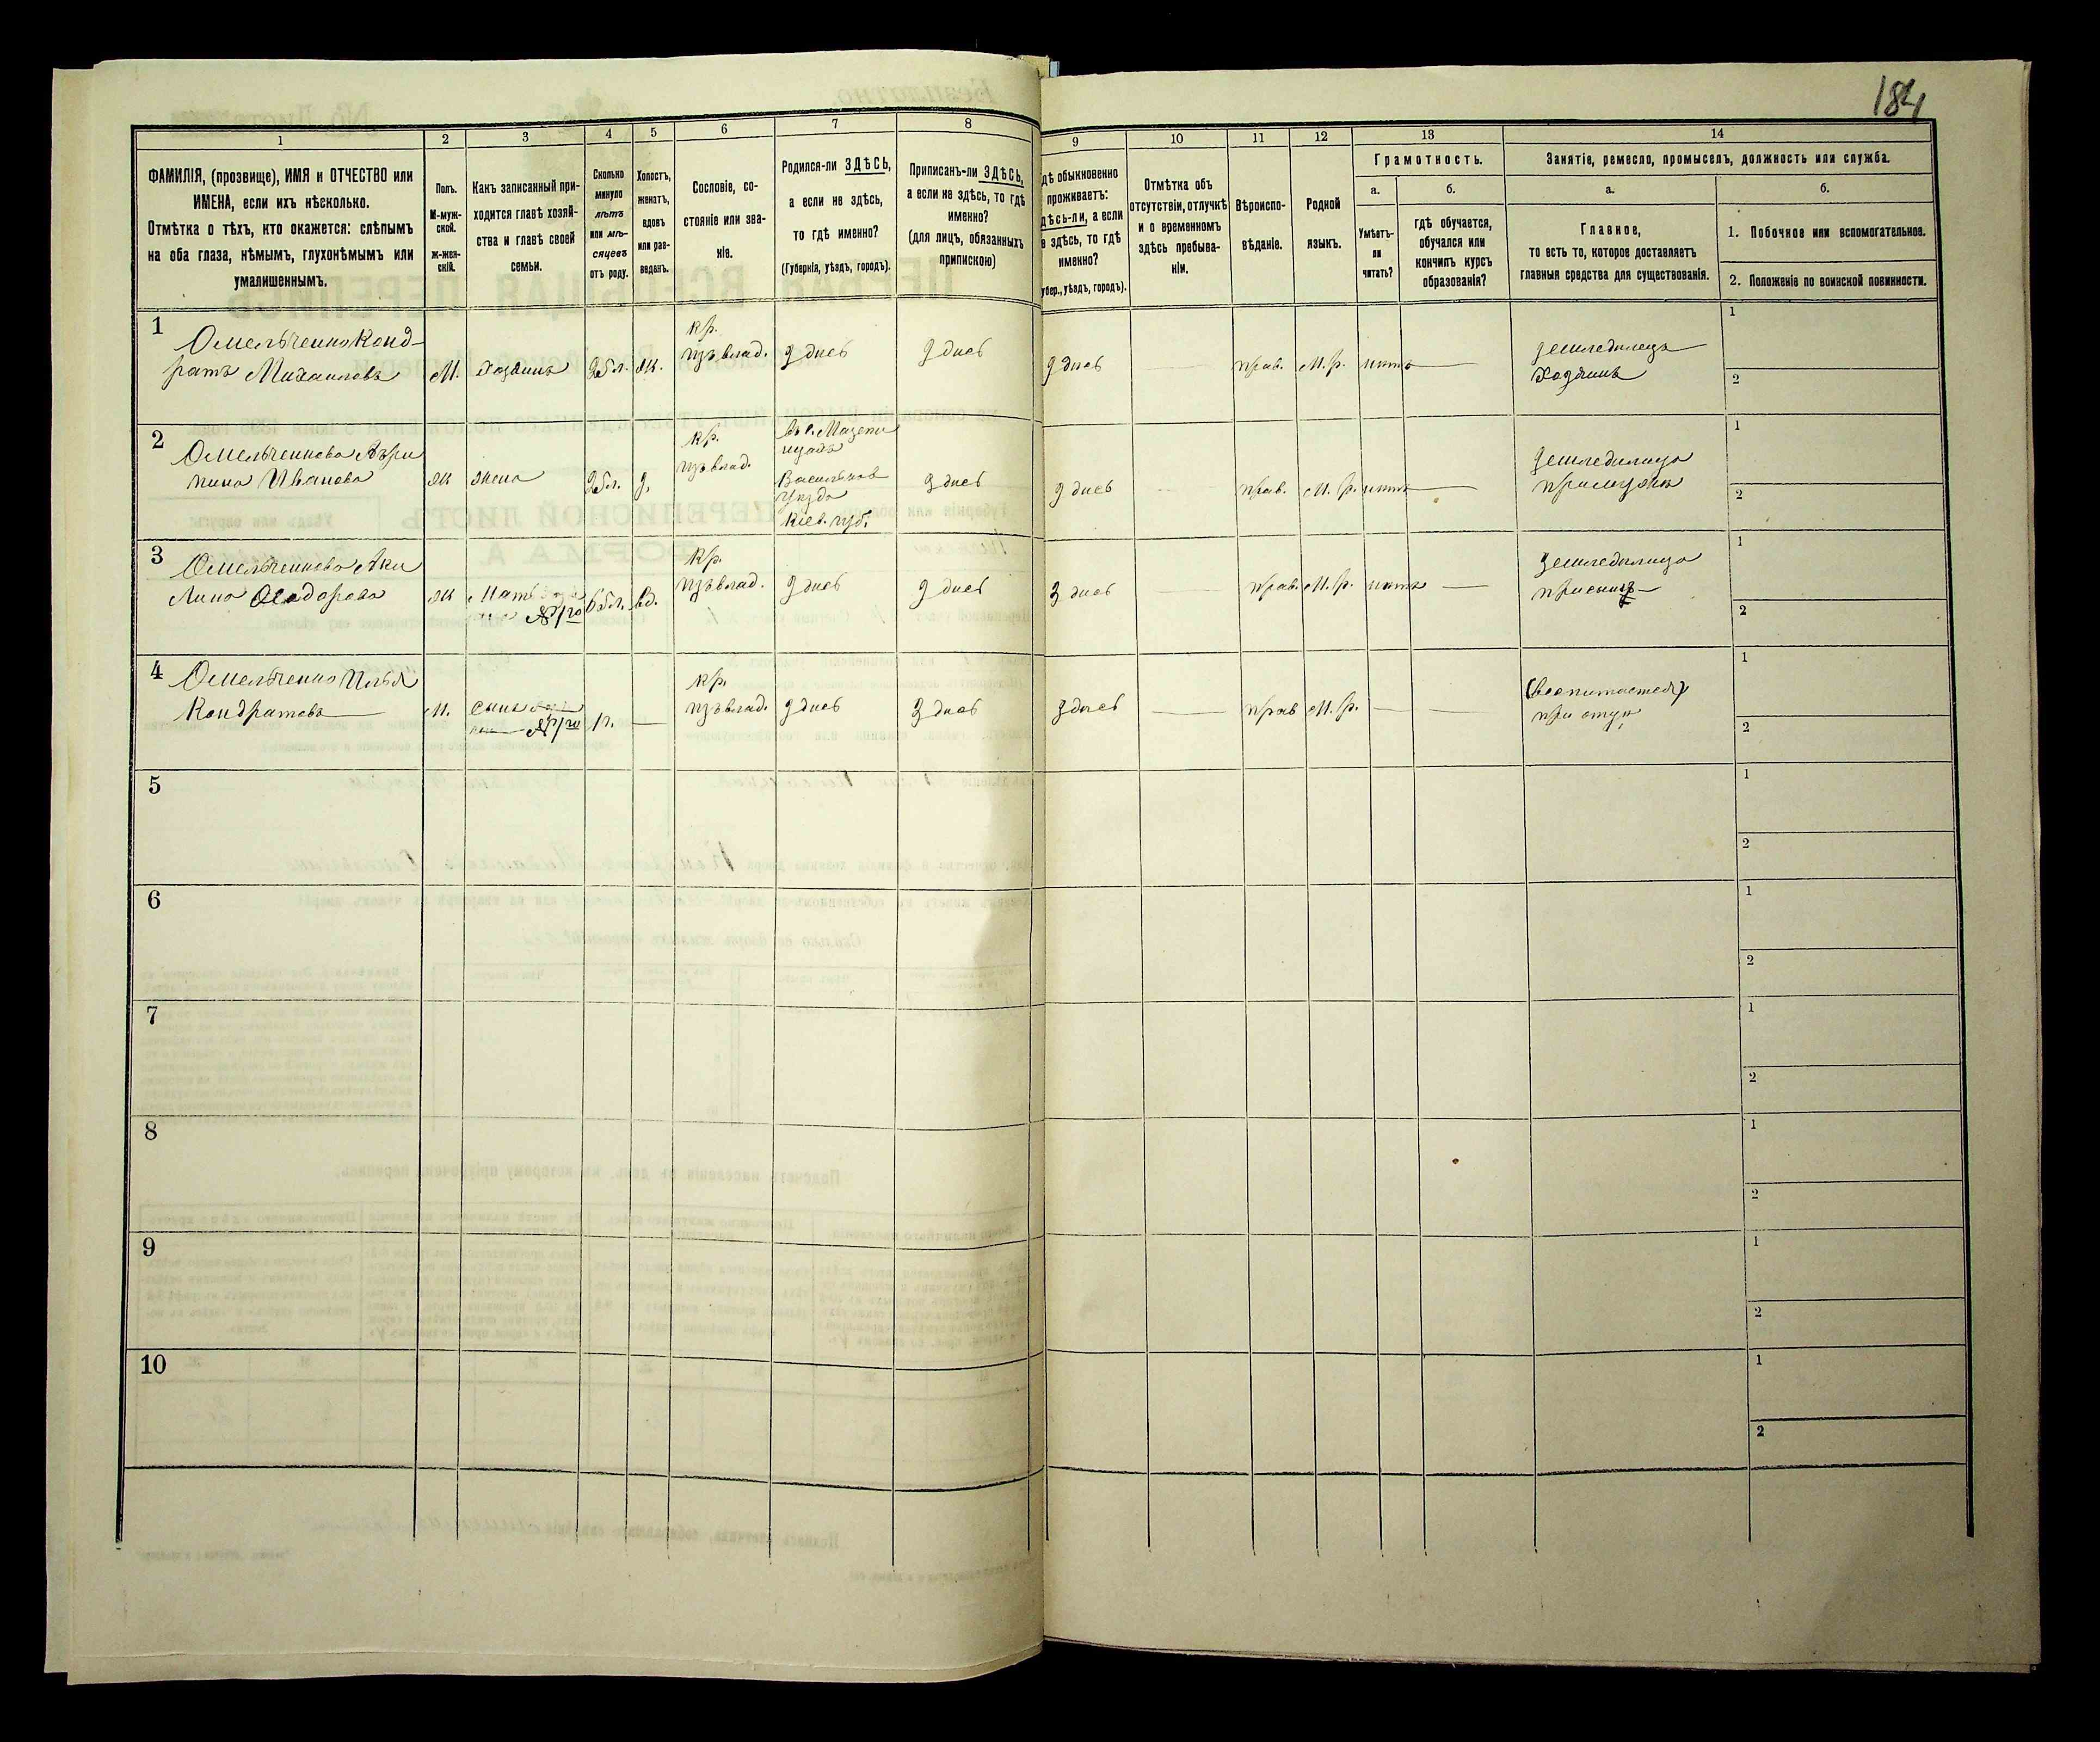 184
1
2
3
4
5
6
7
8
9
10
11
12
13
14
ФАМИЛІЯ, (прозвище), ИМЯ и ОТЧЕСТВО или
ИМЕНА, если ихъ нѣсколько.
Отмѣтка о тѣхъ, кто окажется: слѣпымъ
на оба глаза, нѣмымъ, глухонѣмымъ или
умалишеннымъ.
Полъ.
М-муж-
ской.
ж-жен-
скій.
Какъ записанный при-
ходится главѣ хозяй-
ства и главѣ своей
семьи.
Сколько
минуло
лѣтъ
или мѣ-
сяцевъ
отъ роду.
Холостъ,
женатъ,
вдовъ
или раз-
веденъ.
Сословіе, со-
стояніе или зва-
ніе.
Родился-ли ЗДѢСЬ,
а если не здѣсь,
то гдѣ именно?
(Губернія, уѣздъ, городъ).
Приписанъ-ли ЗДѢСЬ,
а если не здѣсь, то гдѣ
именно?
(для лицъ, обязанныхъ
припискою)
дѣ обыкновенно
проживаетъ:
дѣсь-ли, а если
е здѣсь, то гдѣ
именно?
убер., уѣздъ, городъ).
Отмѣтка объ
отсутствіи, отлучкѣ
и о временномъ
здѣсь пребыва-
ніи.
Вѣроиспо-
вѣданіе.
Родной
языкъ.
Грамотность.
а.
б.
Умѣетъ-
ли
читать?
гдѣ обучается,
обучался или
кончилъ курсъ
образованія?
Занятіе, ремесло, промыселъ, должность или служба.
а.
б.
Главное,
то есть то, которое доставляетъ
главныя средства для существованія.
1. Побочное или вспомогательное.
2. Положеніе по воинской повинности.
1
Омельченко Конд-
ратъ Михаиловъ
М.
хозяинъ
25 л.
ж.
кр.
изъ влад.
здесь
здесь
здесь
прав.
М. р.
нетъ
земледелецъ
хозяинъ
1
2
2
Омельченкова Агри
пина Иванова
ж
жена
кр.
изъ влад.
въ с. Мазепи
нцахъ
Васильков
уезда
Кіев. губ.
здесь
здесь
прав.
М. р.
нетъ
земледелица
при муже
1
2
3
Омельченкова Аки
лина Феодорова
ж
мать
№ 1го
65 л.
вд.
кр.
изъ влад.
здесь
здесь
здесь
прав.
М. р.
нетъ
земледелица
при сыне
1
2
4
Омельченко Илья
Кондратовъ
М.
сынъ
№ 1го
1 г.
кр.
изъ влад.
здесь
здесь
здесь
прав
М. р.
(воспитается)
при отце
1
2
5
1
2
6
1
2
7
1
2
8
1
2
9
1
2
10
1
2